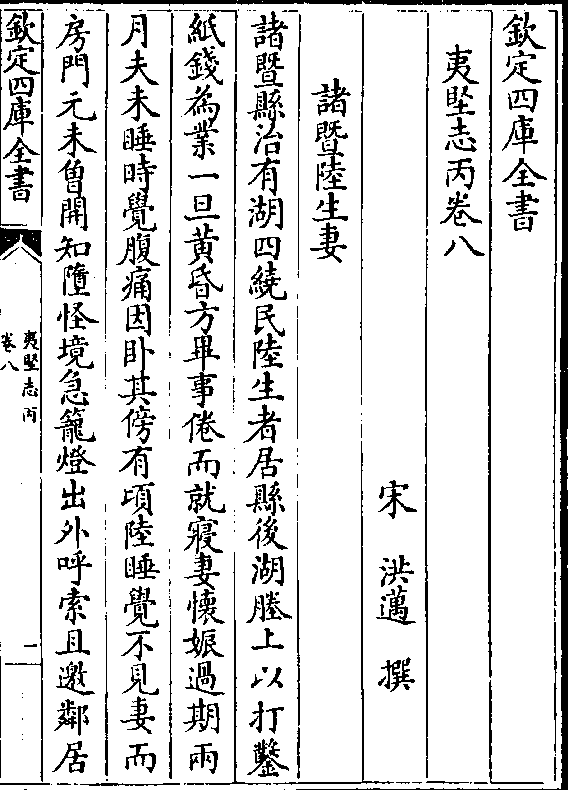 欽定四庫全書
夷堅志丙卷八
宋 洪邁 撰
諸暨陸生妻
諸暨縣治有湖四繞民陸生者居縣後湖塍上以打鑿
紙錢為業一旦黄昏方畢事倦而就寢妻懷娠過期兩
月夫未睡時覺腹痛因卧其傍有頃陸睡覺不見妻而
房門元未曾開知墮怪境急籠燈出外呼索且邀鄰居
欽定四庫全書
夷堅志丙
卷八
一